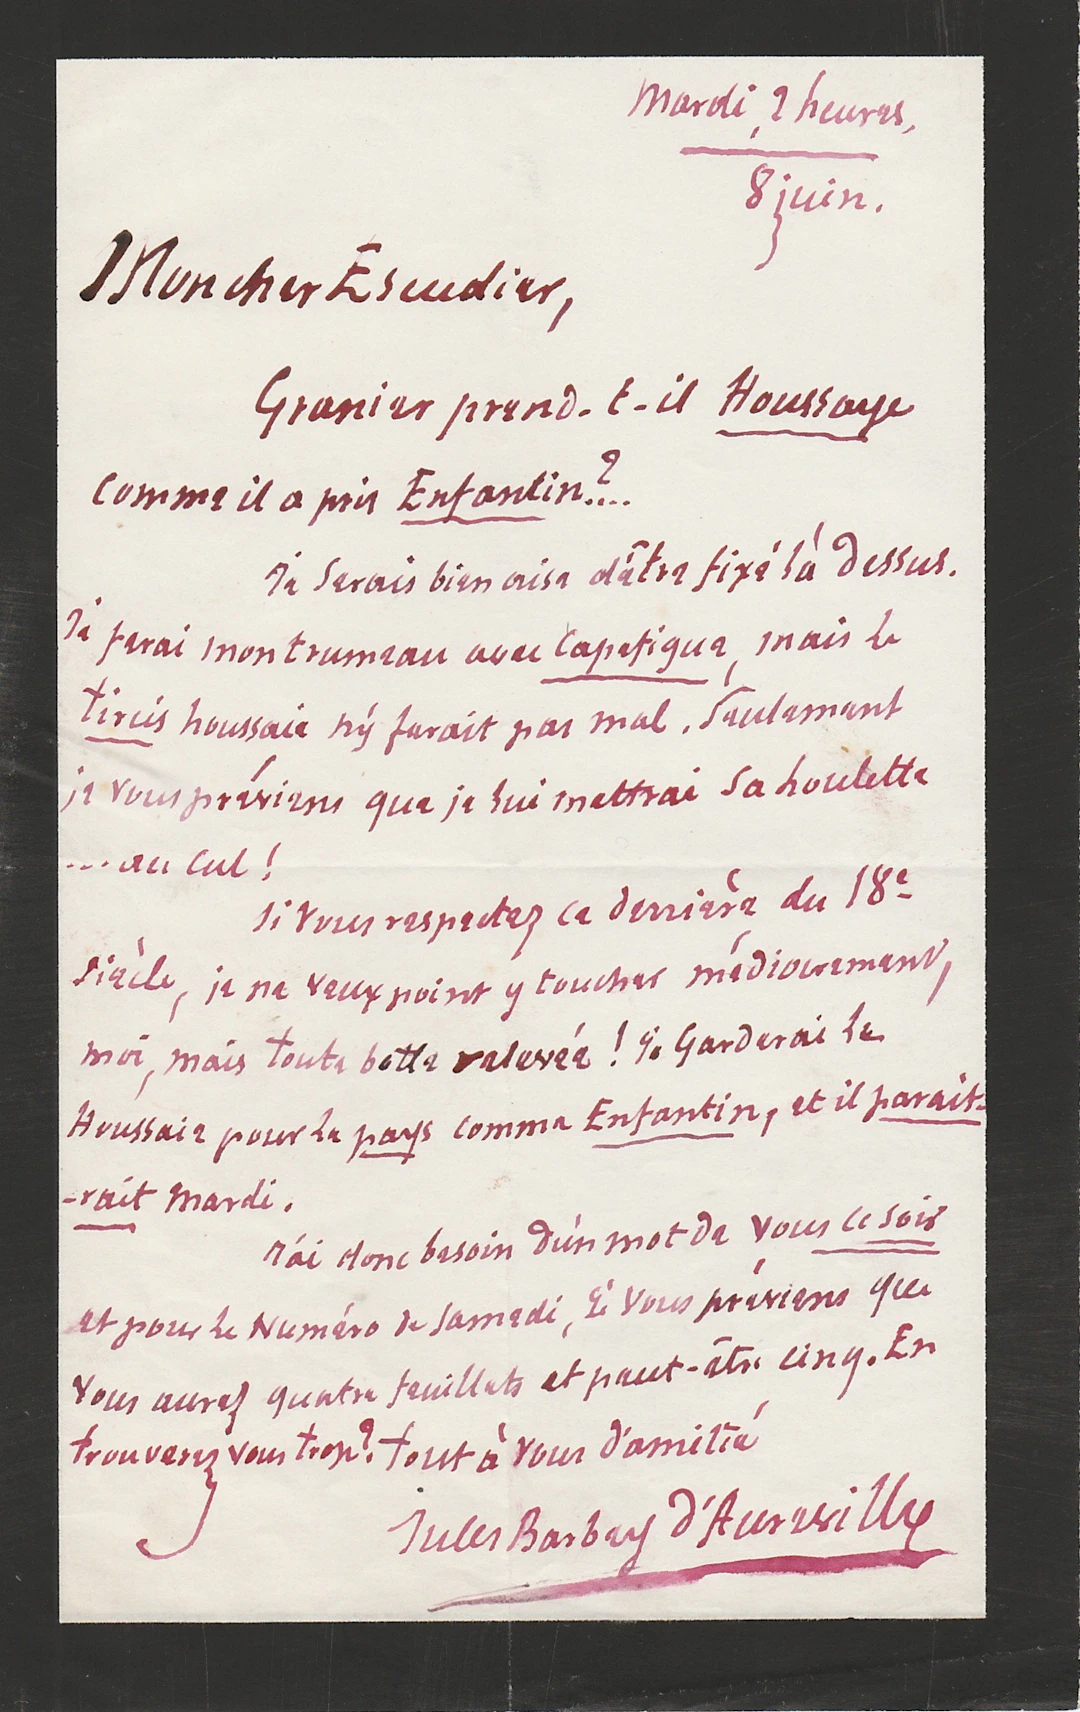 Mardi, 2 heures,
8 juin.
Mon cher Escudier,
Granier prend-t-il Houssaye
comme il a pris Enfantin..?..
Je serais bien aise d'être fixé là dessus.
Je ferai mon trumeau avec Capefigue, mais le
tircis houssaie n'y ferait pas mal. Seulement
je vous préviens que je lui mettrai sa houlette
... au cul !
Si vous respectez ce derrière du 18e
siècle, je ne veux point y toucher médiocrement,
moi, mais toute botte relevée ! Je Garderai le
Houssaie pour le pays comme Enfantin, et il parait-
-rait Mardi.
J'ai donc besoin d'un mot de vous ce soir
et pour le Numéro de Samedi, Je vous préviens que
vous aurez quatre feuillets et peut-être cinq. En
trouverez vous trop?. tout à vous d'amitié
Jules Barbey d'Aurevilly